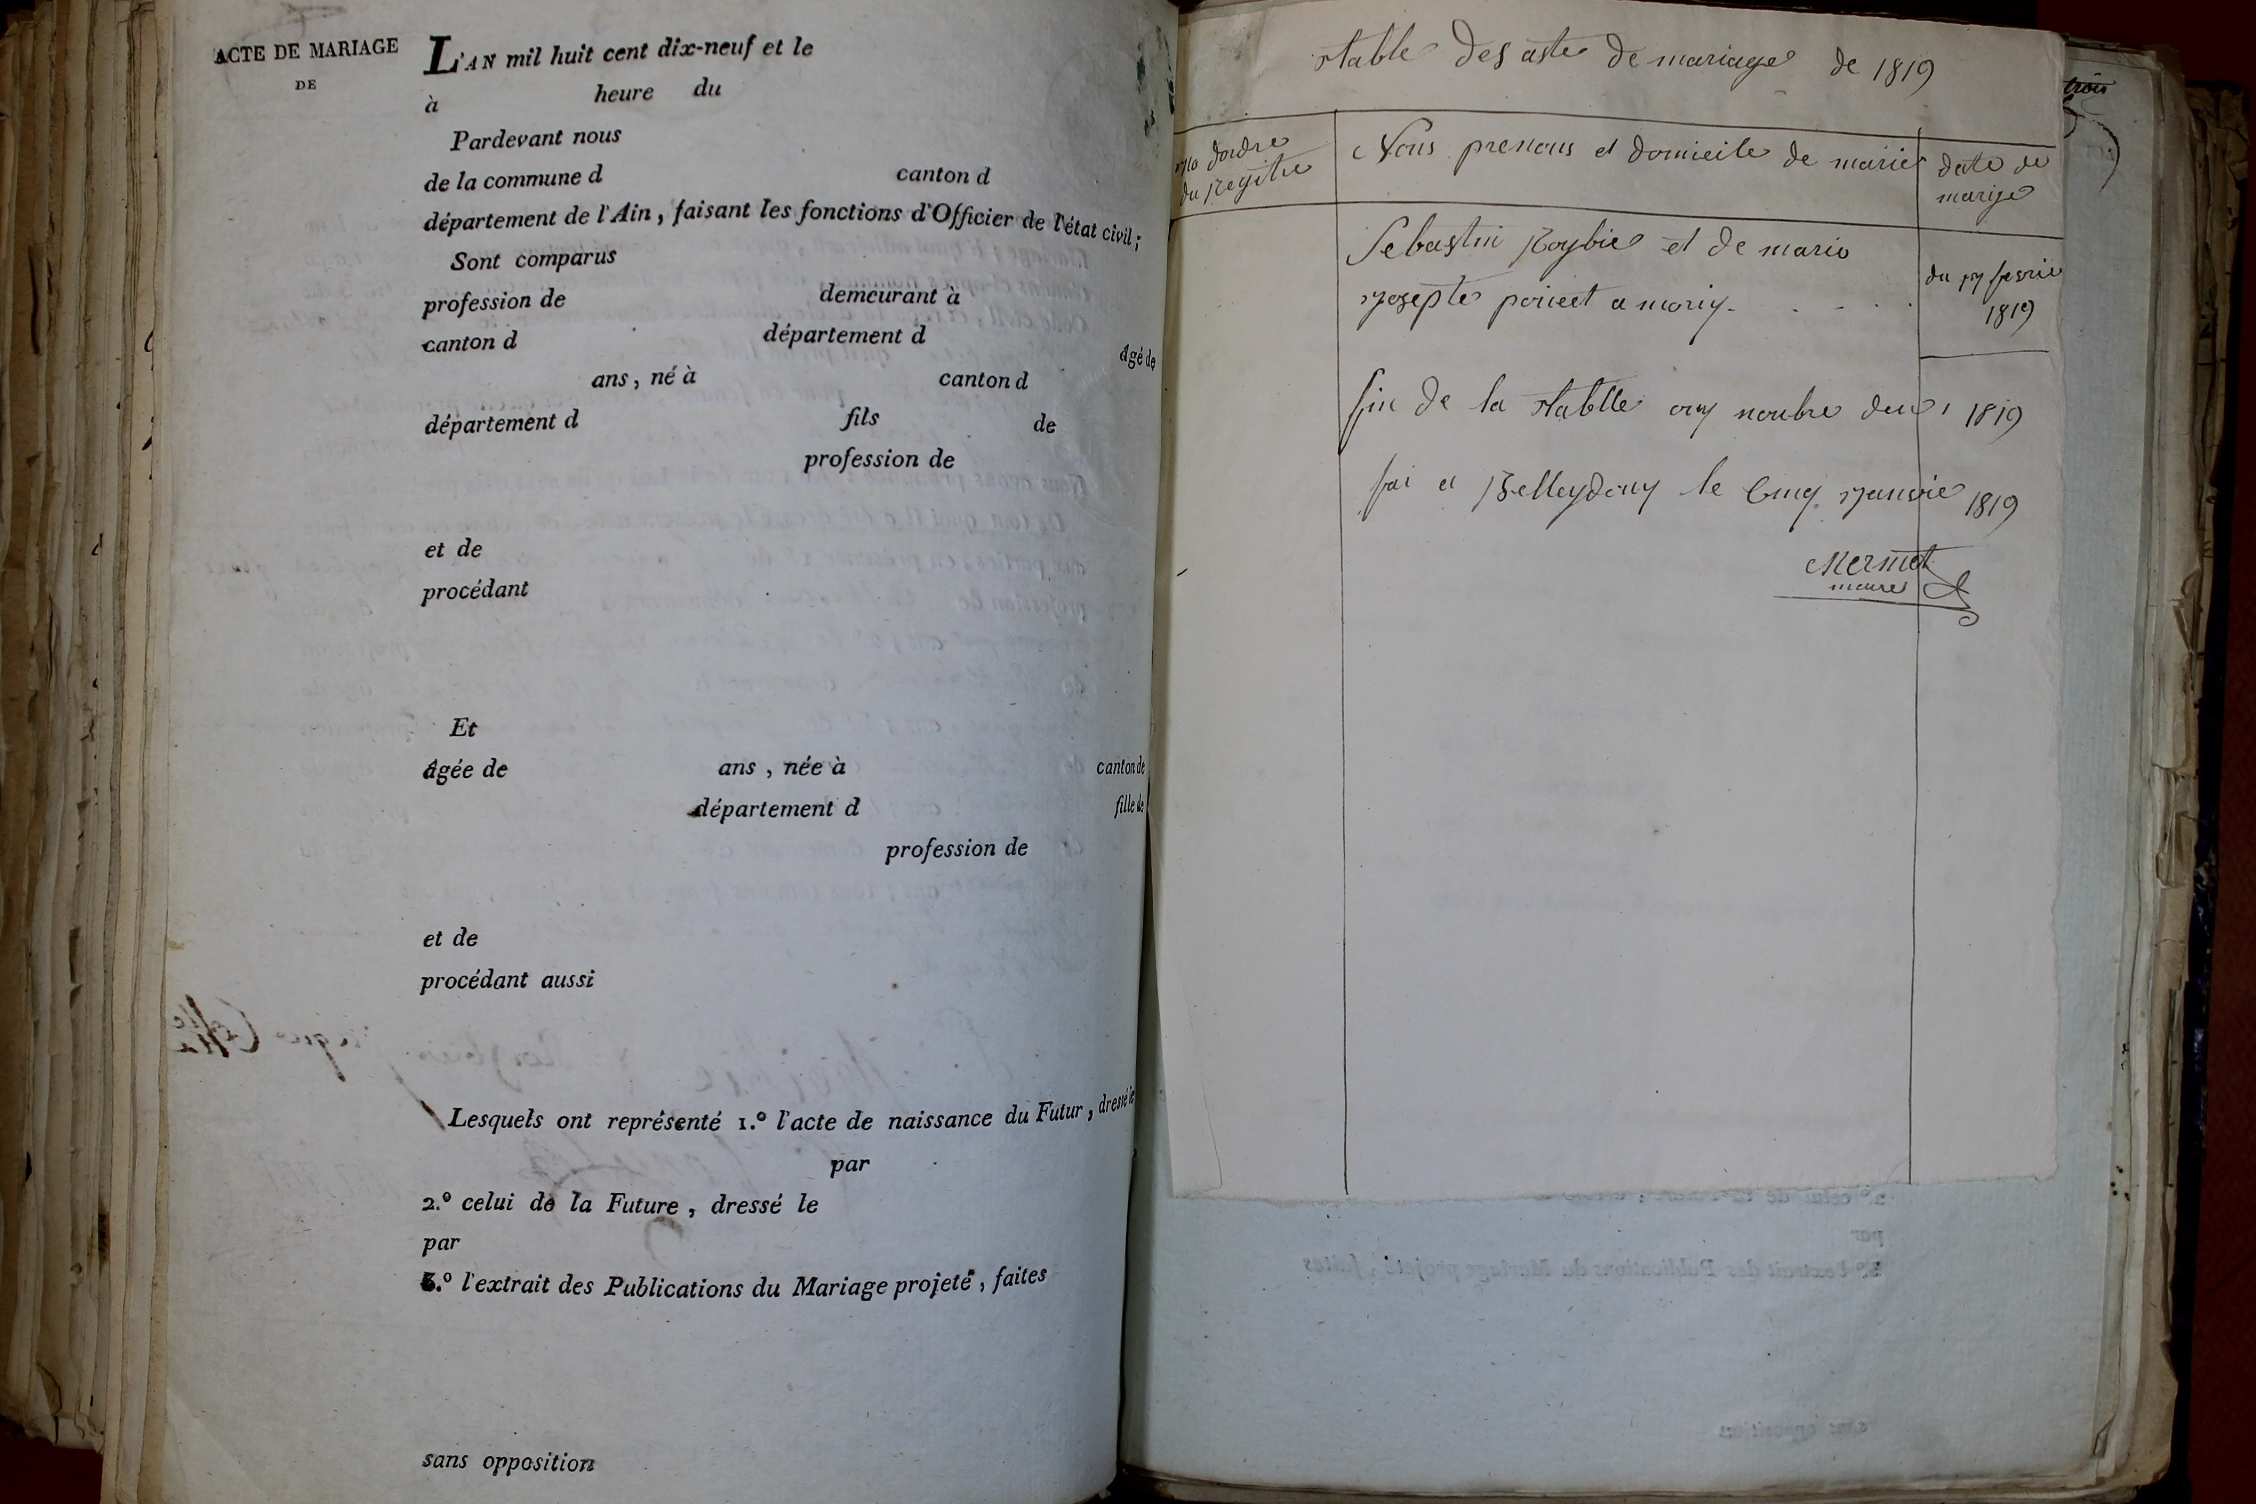 ACTE DE MARIAGE
DE
L'AN mil huit cent dix-neuf et le
à heure du
Pardevant nous
de la commune d canton d
département de l'Ain, faisant les fonctions d'Officier de l'état civil;
Sont comparus
profession de demeurant à
canton d département d
âgé de
ans, né à canton d
département d fils de
profession de
et de
procédant
Et
âgée de ans, née à canton de
département d fille de
profession de
et de
procédant aussi
Lesquels ont représenté 1.º l'acte de naissance du Futur, dressé le
par
2.º celui de la Future, dressé le
par
3.º l'extrait des Publications du Mariage projeté, faites
sans opposition
stable des aste de mariage de 1819
no dordre
du Regitre
Nous prenous et domicile de maries
date de
marige
Sebastin Roybie et de marie
du 17 fevrie
Josepte poncet a moriy
1819
fin de la stablle any nonbre deu 1 1819
fai a Belleydouy le Cinq Janvie 1819
Mermet
maire
trois